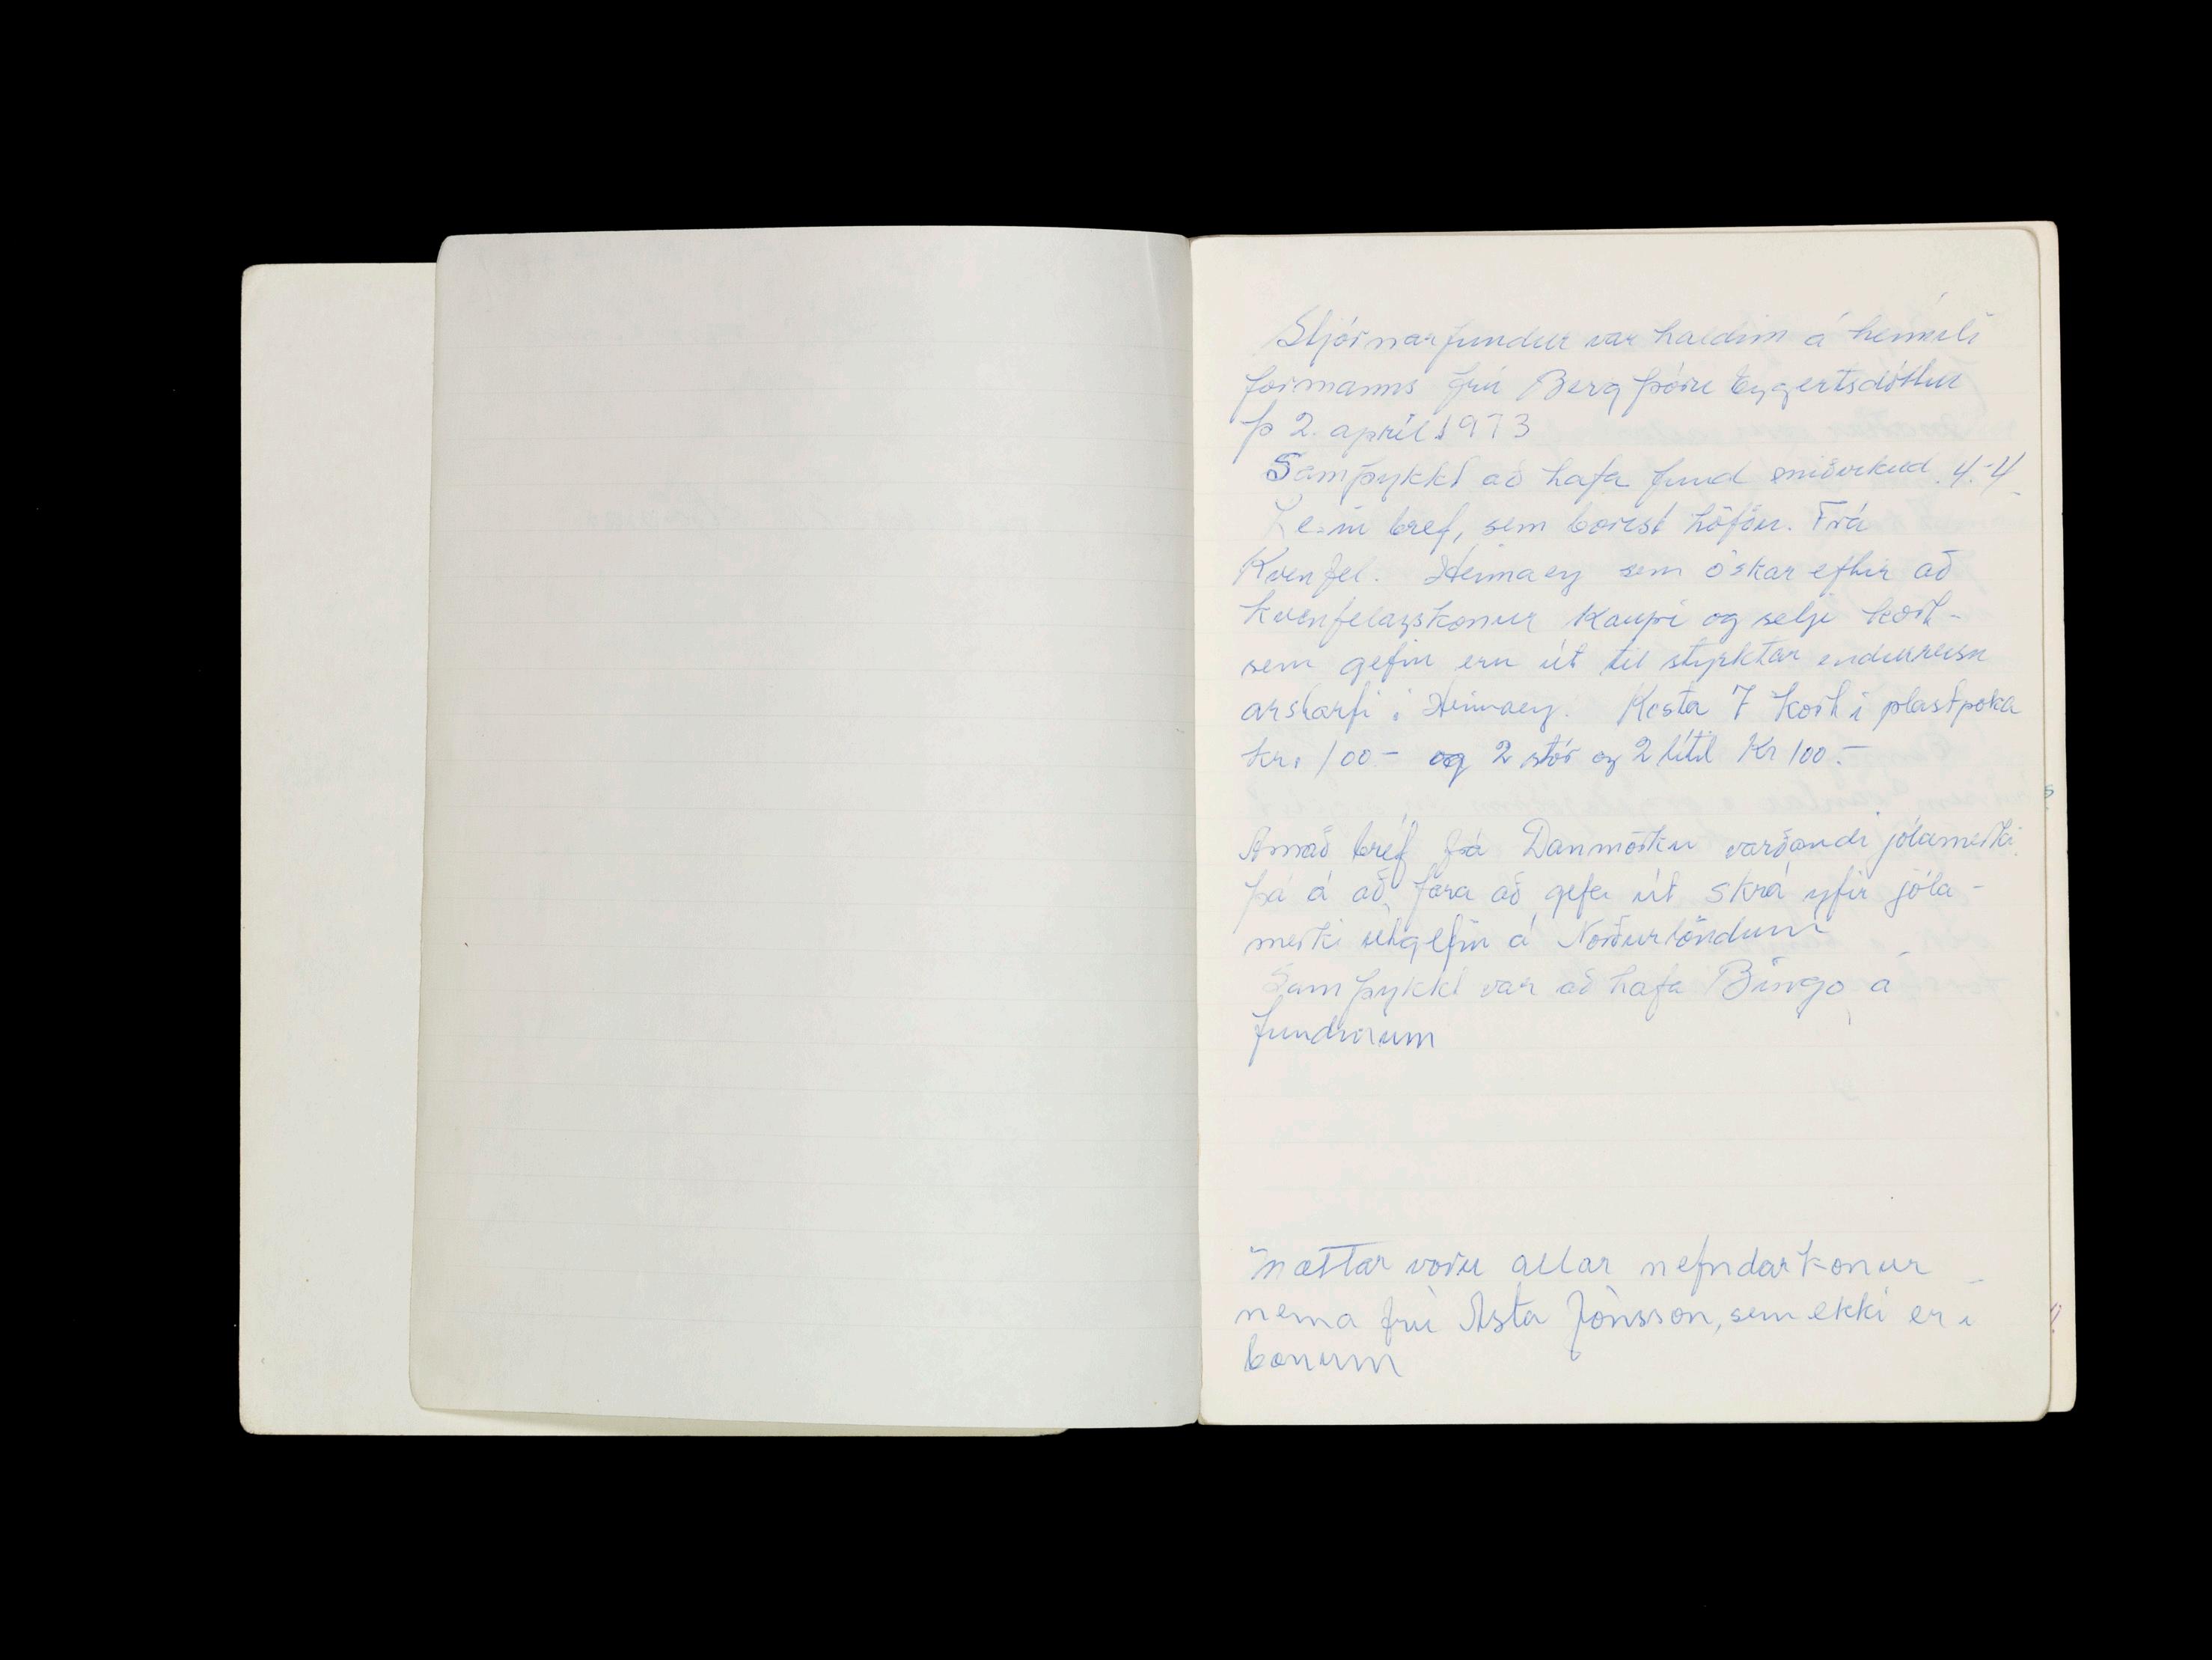 Stjórnarfundur var haldin á heimili
formanns frú Bergþóru Eggertsdóttur
þ 2. apríl 1973
Samþykkt að hafa fund miðvikud. 4.-4
Lesin bref, sem borist höfðu. Frá
Kvenfel. Heimaey sem óskar eftir að
kvenfelagskonur kaupi og selji kort-
sem gefin eru út til styrktar endurreisn
arstarfi i Heimaey. Kosta 7 kort i plastpoka
kr. 100- og 2 stór og 2 lítil Kr 100.-
Annað bréf frá Danmörku varðandi jólamerki.
þá á að fara að gefa út skrá yfir jóla-
merki útgefin á Norðurlöndum
Samþykkt var að hafa Bingo á
fundinum
Mættar voru allar nefndarkonur
nema frú Asta Jónsson, sem ekki er i
bænum